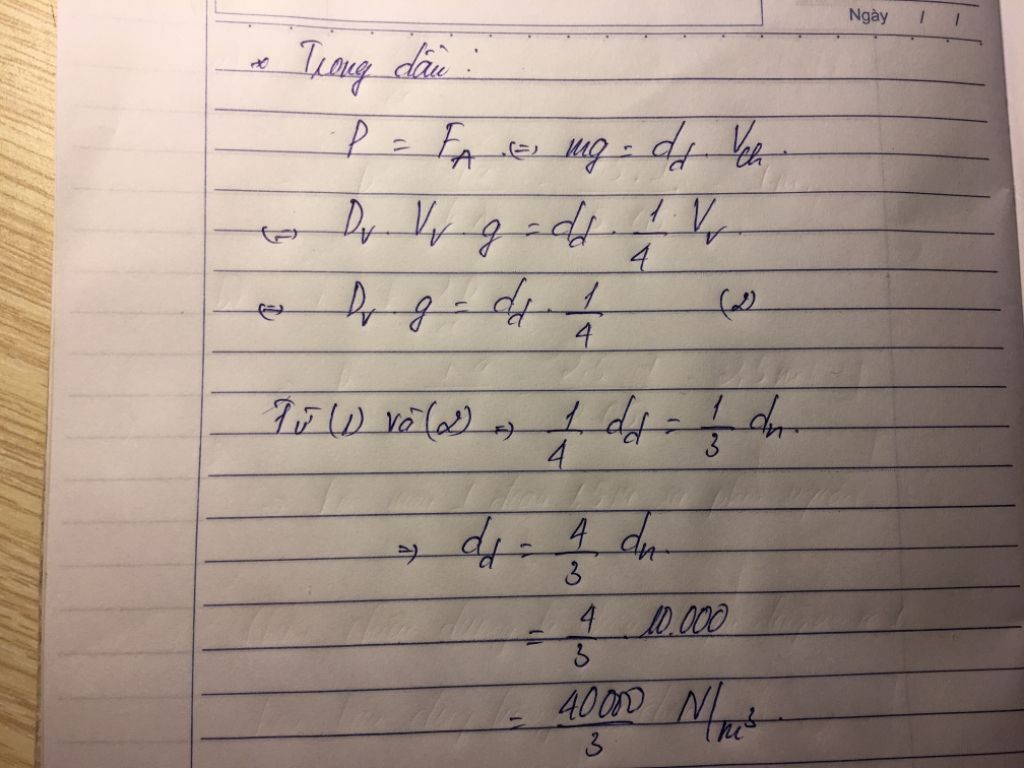 Ngày / /
* Trong dầu :
P = F_A ⇔ mg = d_d . V_ch.
⇔ D_v . V_v . g = d_d . 1/4 . V_v.
⇔ D_v . g = d_d . 1/4 (2)
Từ (1) và (2) ⇒ 1/4 d_d = 1/3 d_n.
⇒ d_d = 4/3 d_n.
= 4/3 . 10.000
= 40000/3 N/m³.